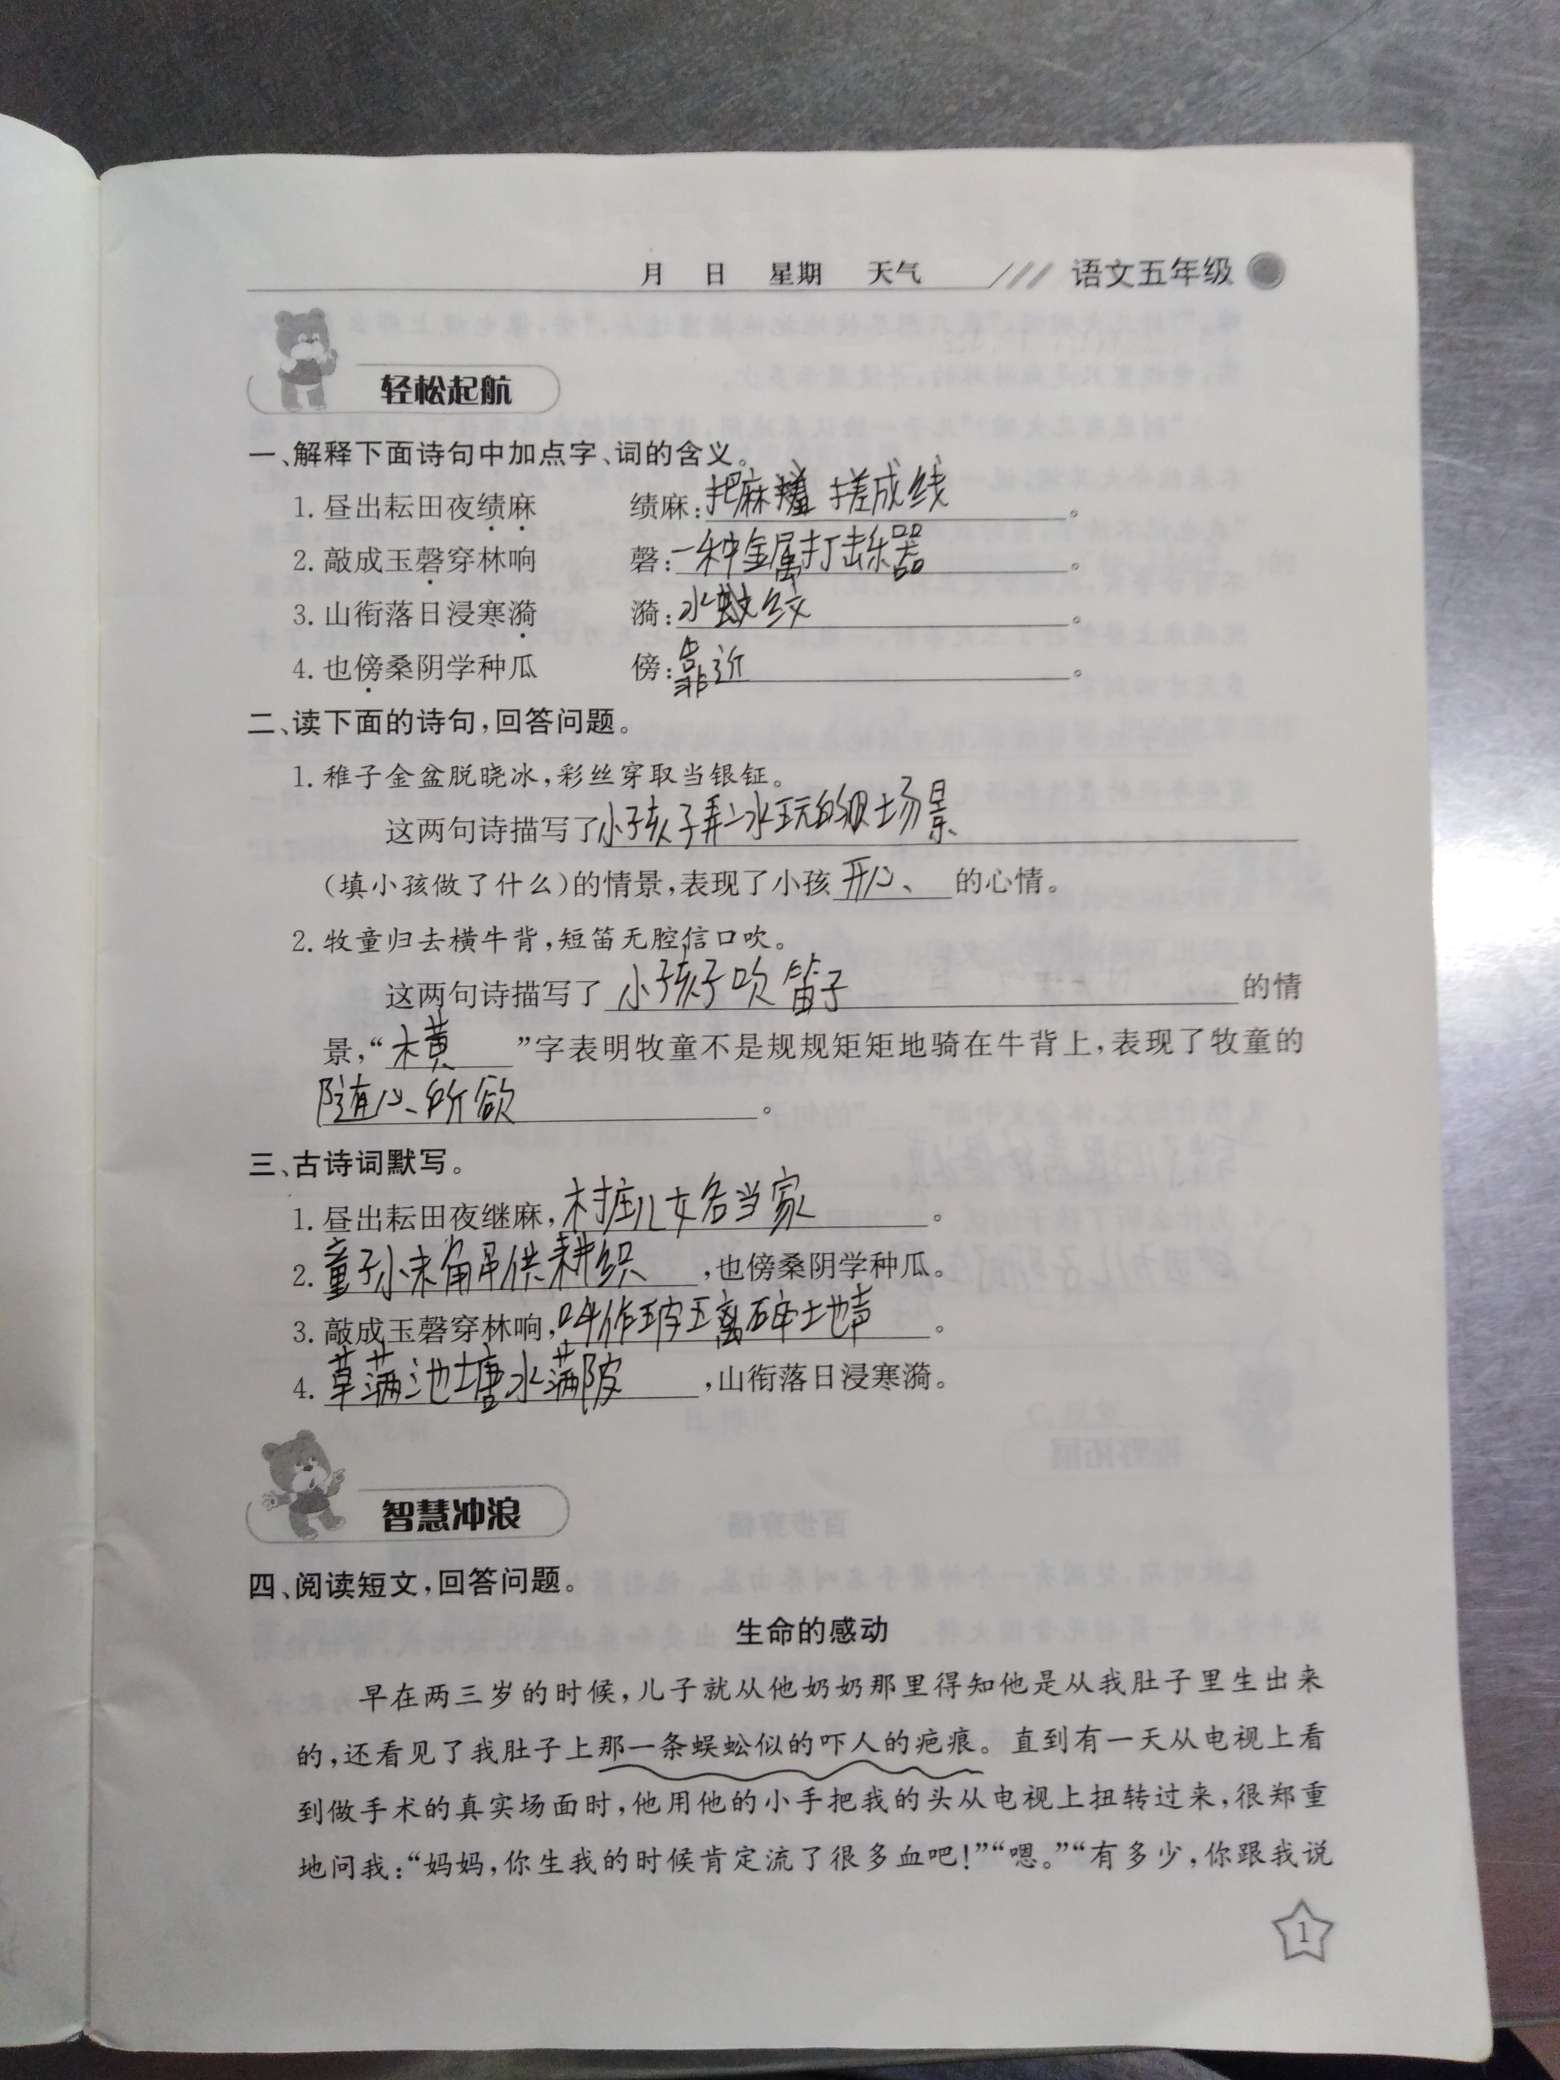 月 日 星期 天气 语文五年级
轻松起航
一、解释下面诗句中加点字、词的含义。
1. 昼出耘田夜绩麻 绩麻:把麻搓成线。
2. 敲成玉磬穿林响 磬:一种金属打击乐器。
3. 山衔落日浸寒漪 漪:水纹。
4. 也傍桑阴学种瓜 傍:靠近。
二、读下面的诗句,回答问题。
1. 稚子金盆脱晓冰,彩丝穿取当银钲。
这两句诗描写了小孩子弄冰玩的场景
(填小孩做了什么)的情景,表现了小孩开心的心情。
2. 牧童归去横牛背,短笛无腔信口吹。
这两句诗描写了小孩子吹笛子的情
景,“横”字表明牧童不是规规矩矩地骑在牛背上,表现了牧童的
随心所欲。
三、古诗词默写。
1. 昼出耘田夜继麻,村庄儿女各当家。
2. 童子小未角供耕织,也傍桑阴学种瓜。
3. 敲成玉磬穿林响,叫作玻璃碎地声。
4. 草满池塘水满陂,山衔落日浸寒漪。
智慧冲浪
四、阅读短文,回答问题。
生命的感动
早在两三岁的时候,儿子就从他奶奶那里得知他是从我肚子里生出来
的,还看见了我肚子上那一条蜈蚣似的吓人的疤痕。直到有一天从电视上看
到做手术的真实场面时,他用他的小手把我的头从电视上扭转过来,很郑重
地问我:“妈妈,你生我的时候肯定流了很多血吧!”“嗯。”“有多少,你跟我说
1